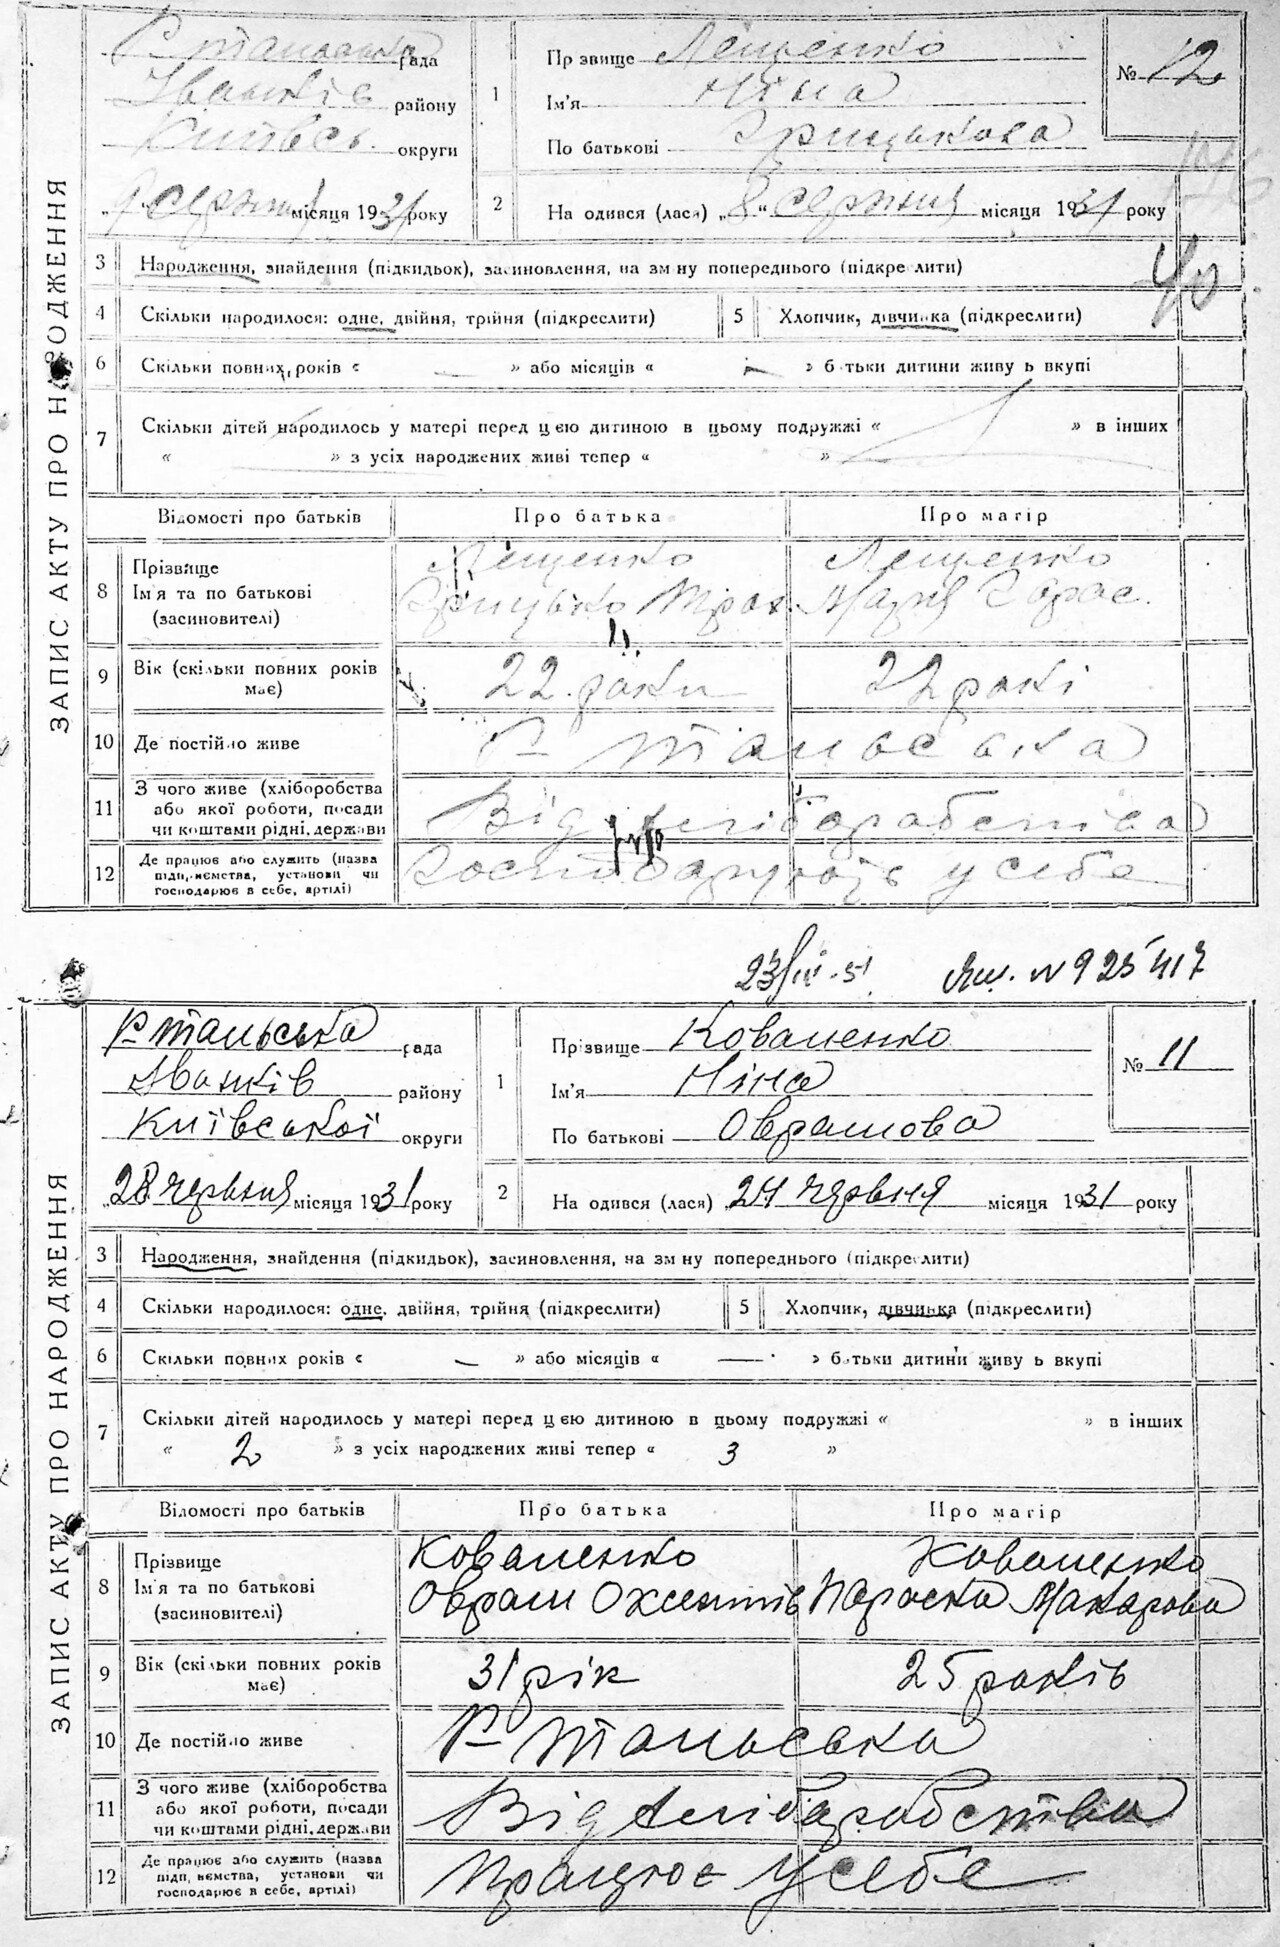 ЗАПИС АКТУ ПРО НАРОДЖЕННЯ
Р. тальська рада
Іванків району
Київсь. округи
„9“ серпня місяця 1931 року
1
Прізвище Лещенко
Ім'я Ніна
По батькові Грицькова
№ 12
176
2
На одився (лася) „8“ серпня місяця 1931 року
40
3 Народження, знайдення (підкидьок), засиновлення, на зм ну попереднього (підкреслити)
4 Скільки народилося: одне, двійня, трійня (підкреслити) 5 Хлопчик, дівчинка (підкреслити)
6 Скільки повних років « — » або місяців « — » батьки дитини живу ь вкупі
7 Скільки дітей народилось у матері перед цею дитиною в цьому подружжі « » в інших
« » з усіх народжених живі тепер « »
Відомості про батьків Про батька Про матір
8 Прізвище
Ім'я та по батькові
(засиновителі)
Лещенко
Грицько Троx.
Лещенко
Марія
9 Вік (скільки повних років
має)
22 роки 22 рокі
10 Де постійно живе Р. тальська
11 З чого живе (хліборобства
або якої роботи, посади
чи коштами рідні, держави
Від хліборобства
12 Де працює або служить (назва
підприємства, установи чи
господарює в себе, артілі)
Господарюють у себе
23/IV-51 № 925417
ЗАПИС АКТУ ПРО НАРОДЖЕННЯ
Р. тальська рада
Іванків району
Київської округи
„28 червня місяця 1931 року
1
Прізвище Коваленко
Ім'я Ніна
По батькові Оврамова
№ 11
2
На одився (лася) 24 червня місяця 1931 року
3 Народження, знайдення (підкидьок), засиновлення, на зм ну попереднього (підкреслити)
4 Скільки народилося: одне, двійня, трійня (підкреслити) 5 Хлопчик, дівчинка (підкреслити)
6 Скільки повних років « — » або місяців « — » батьки дитини живу ь вкупі
7 Скільки дітей народилось у матері перед цею дитиною в цьому подружжі « » в інших
« 2 » з усіх народжених живі тепер « 3 »
Відомості про батьків Про батька Про матір
8 Прізвище
Ім'я та по батькові
(засиновителі)
Коваленко
Оврам Охентіїв
Коваленко
Параска Макарова
9 Вік (скільки повних років
має)
31 рік 25 років
10 Де постійно живе Р. тальська
11 З чого живе (хліборобства
або якої роботи, посади
чи коштами рідні, держави
Від хліборобства
12 Де працює або служить (назва
підприємства, установи чи
господарює в себе, артілі)
Працює у себе